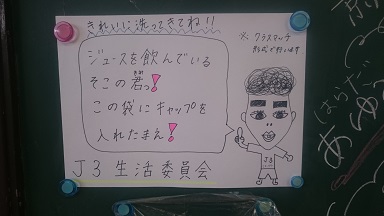 きれいに洗ってきてね!!
※ クラスマッチ
形式で行います
ジュースを飲んでいる
そこの君っ!
この袋にキャップを
入れたまえ!
J3
J3 生活委員会